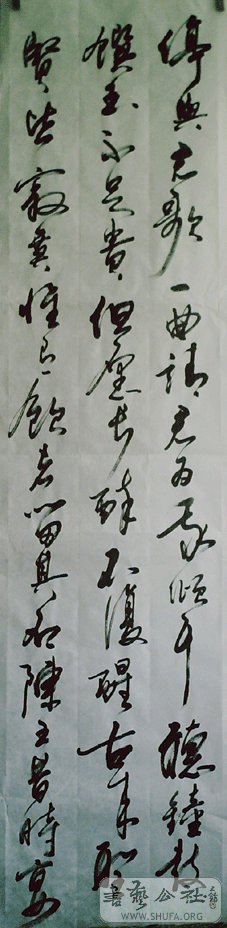 停與君歌一曲請君為我傾耳聽鐘鼓
饌玉不足貴但願長醉不復醒古來聖
賢皆寂寞惟有飲者留其名陳王昔時宴
書藝公社
WWW.SHUFA.ORG